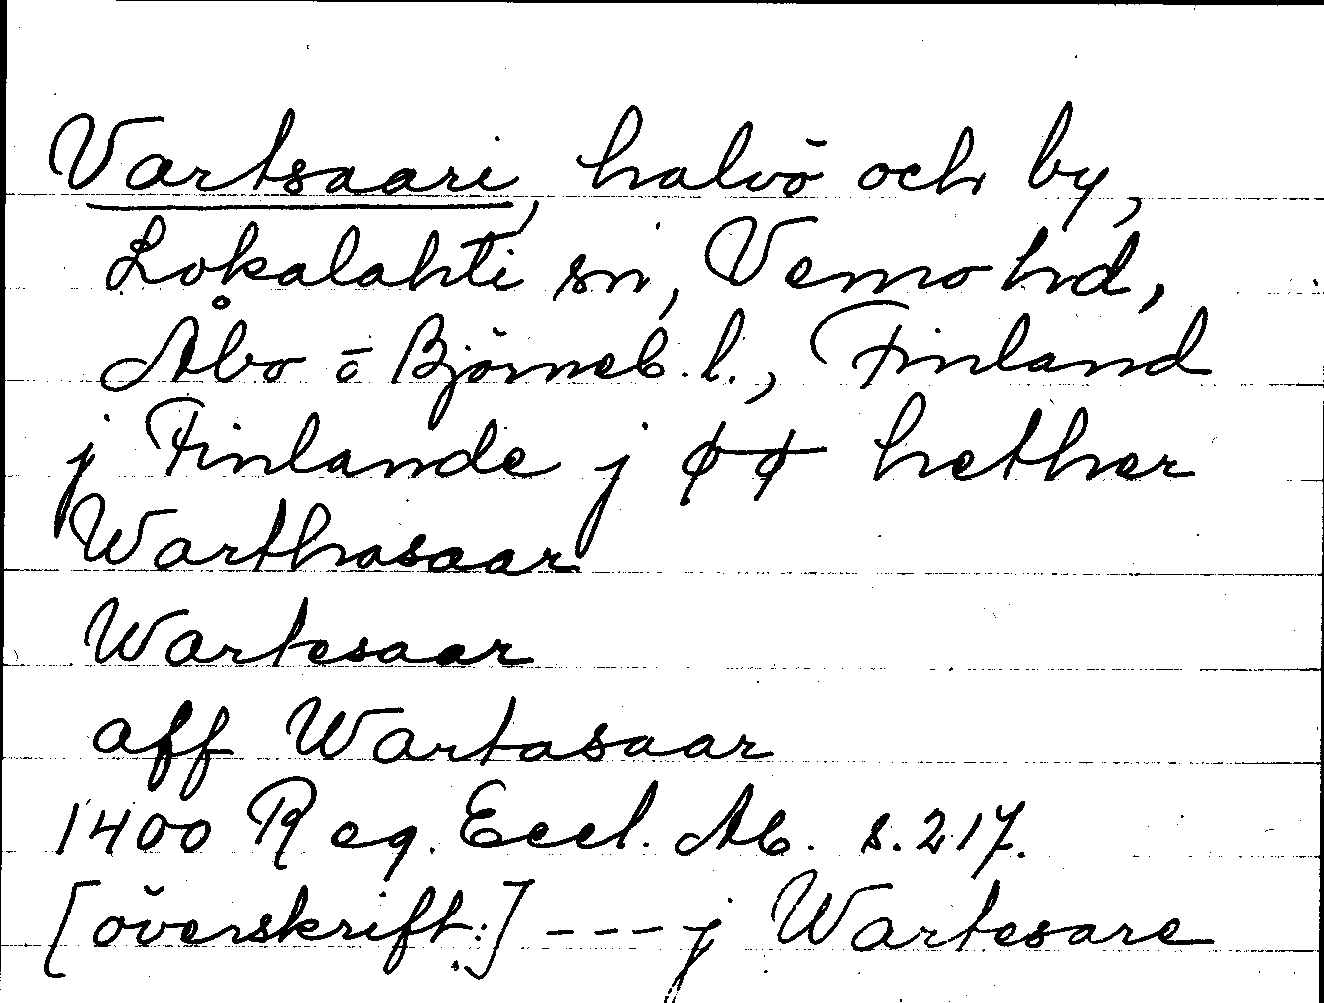 Vartsaari, halvö och by,
Lokalahti sn, Vemo hd,
Åbo o Björneb. l., Finland
j Finlande j ϕϕ hether
Warthasaar
Wartesaar
aff Wartasaar
1400 Reg. Eccl. Ab. s. 217.
[överskrift:] --- j Wartesare